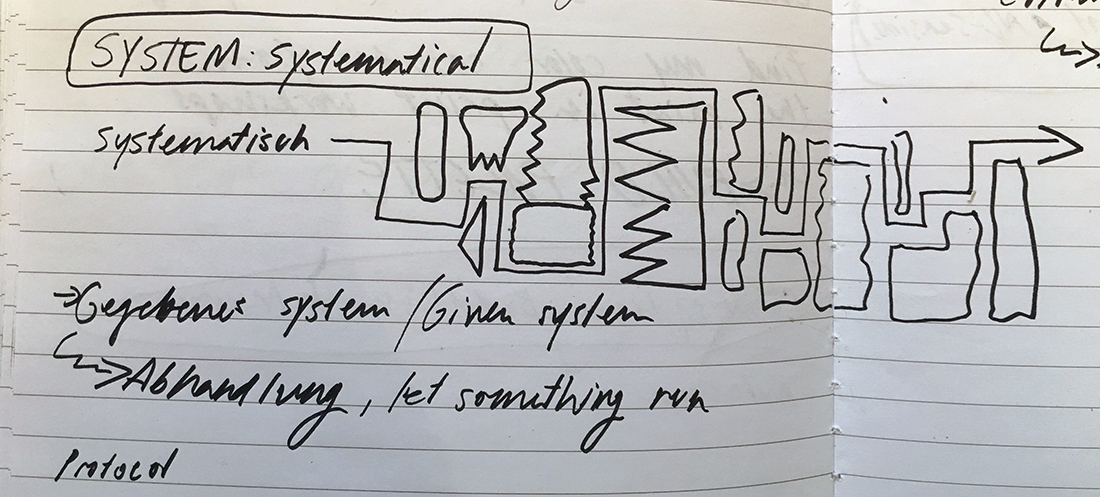 SYSTEM: systematical
systematisch
→ Gegebenes system / Given system
↳ Abhandlung, let something run
Protocol